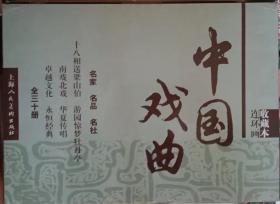 中国戏曲
连环画
收藏本
名家 名品 名社
十八相送梁山伯 游园惊梦牡丹亭
南戏北戏 华夏传唱
卓越文化 永恒经典
全三十册
上海人民美术出版社